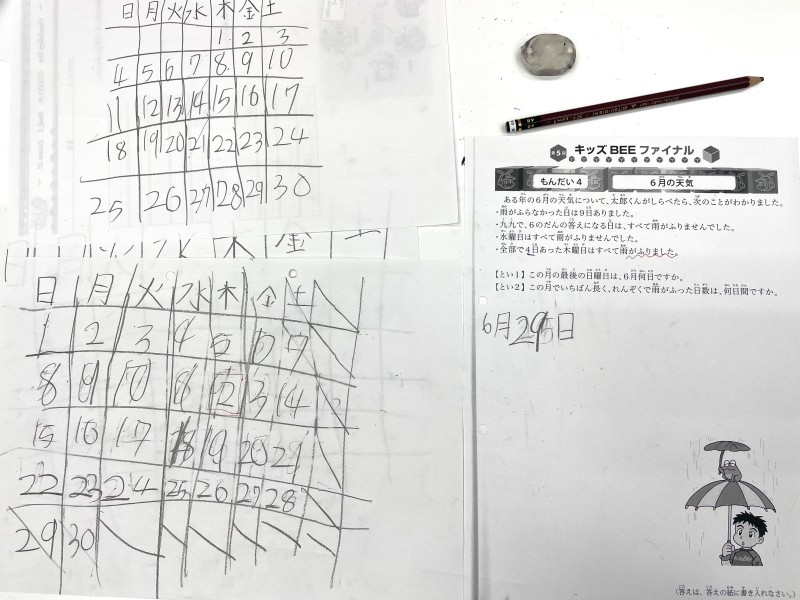 日 月 火 水 木 金 土
1 2 3
4 5 6 7 8 9 10
11 12 13 14 15 16 17
18 19 20 21 22 23 24
25 26 27 28 29 30
日 月 火 水 木 金 土
1 2 3 4 5 6 7
8 9 10 11 12 13 14
15 16 17 18 19 20 21
22 23 24 25 26 27 28
29 30
第5回 キッズBEEファイナル
もんだい4 6月の天気
ある年の6月の天気について、太郎くんがしらべたら、次のことがわかりました。
・雨がふらなかった日は9日ありました。
・九九で、6のだんの答えになる日は、すべて雨がふりませんでした。
・水曜日はすべて雨がふりませんでした。
・全部で4日あった木曜日はすべて雨がふりました。
【とい1】この月の最後の日曜日は、6月何日ですか。
【とい2】この月でいちばん長く、れんぞくで雨がふった日数は、何日間ですか。
6月29日
(答えは、答えの紙に書き入れなさい。)